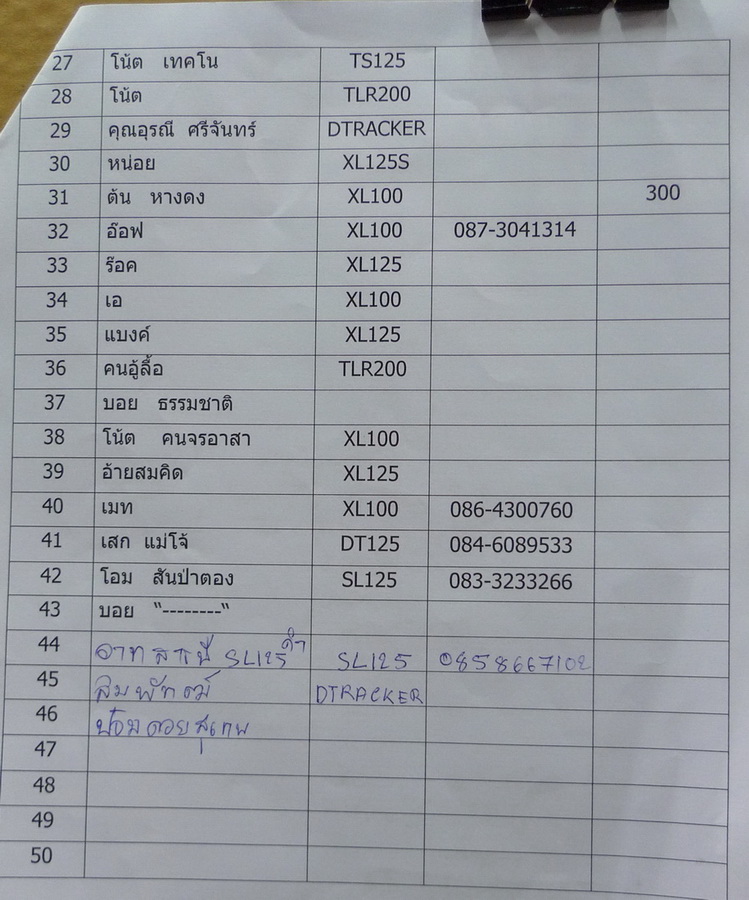 27 โน้ต เทคโน TS125
28 โน้ต TLR200
29 คุณอุรณี ศรีจันทร์ DTRACKER
30 หน่อย XL125S
31 ต้น หางดง XL100 300
32 อ๊อฟ XL100 087-3041314
33 ร๊อค XL125
34 เอ XL100
35 แบงค์ XL125
36 คนอู้ลื้อ TLR200
37 บอย ธรรมชาติ
38 โน้ต คนจรอาสา XL100
39 อ้ายสมคิด XL125
40 เมท XL100 086-4300760
41 เสก แม่โจ้ DT125 084-6089533
42 โอม สันป่าตอง SL125 083-3233266
43 บอย "--------"
44 SL125 SL125 0858667102
45 DTRACKER
46 ป้อม ดอยสุเทพ
47
48
49
50